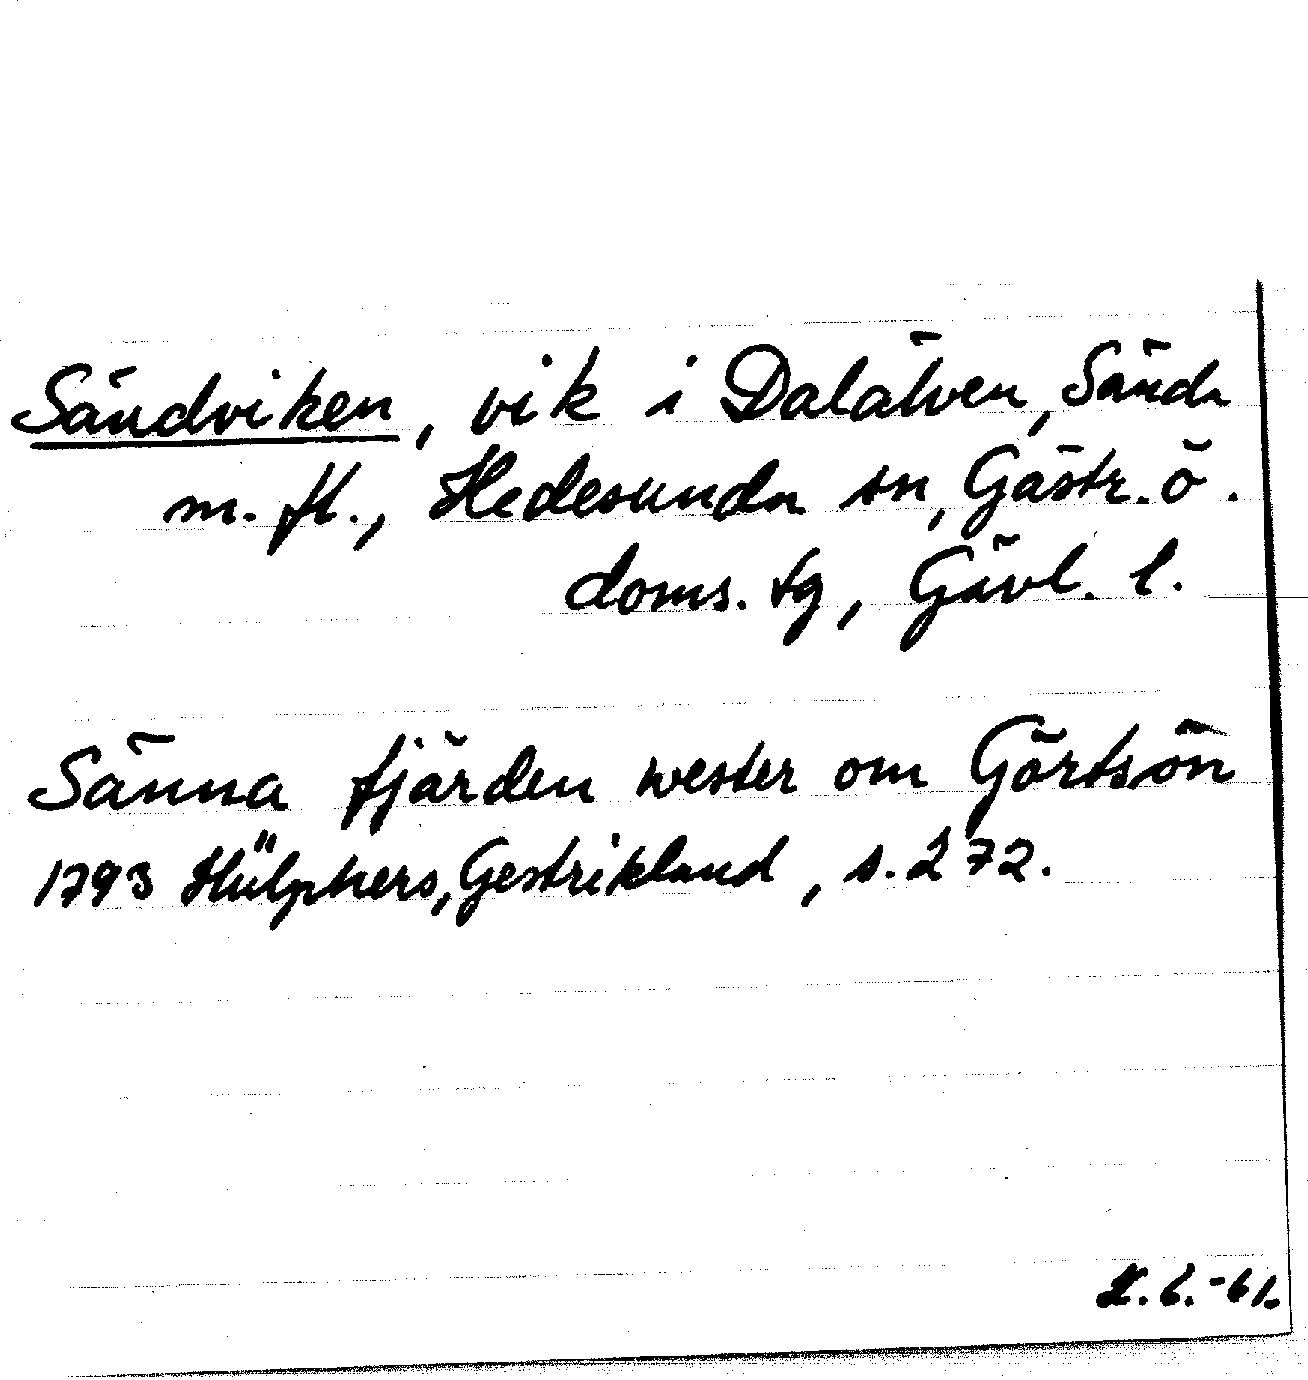 Sändviken, vik i Dalälven, Sända
m. fl., Hedesunda sn, Gästr. ö.
doms. tg, Gävl. l.
Sänna fjärden wester om Görtsön
1793 Hülphers, Gestrikland, s. 272.
-61.